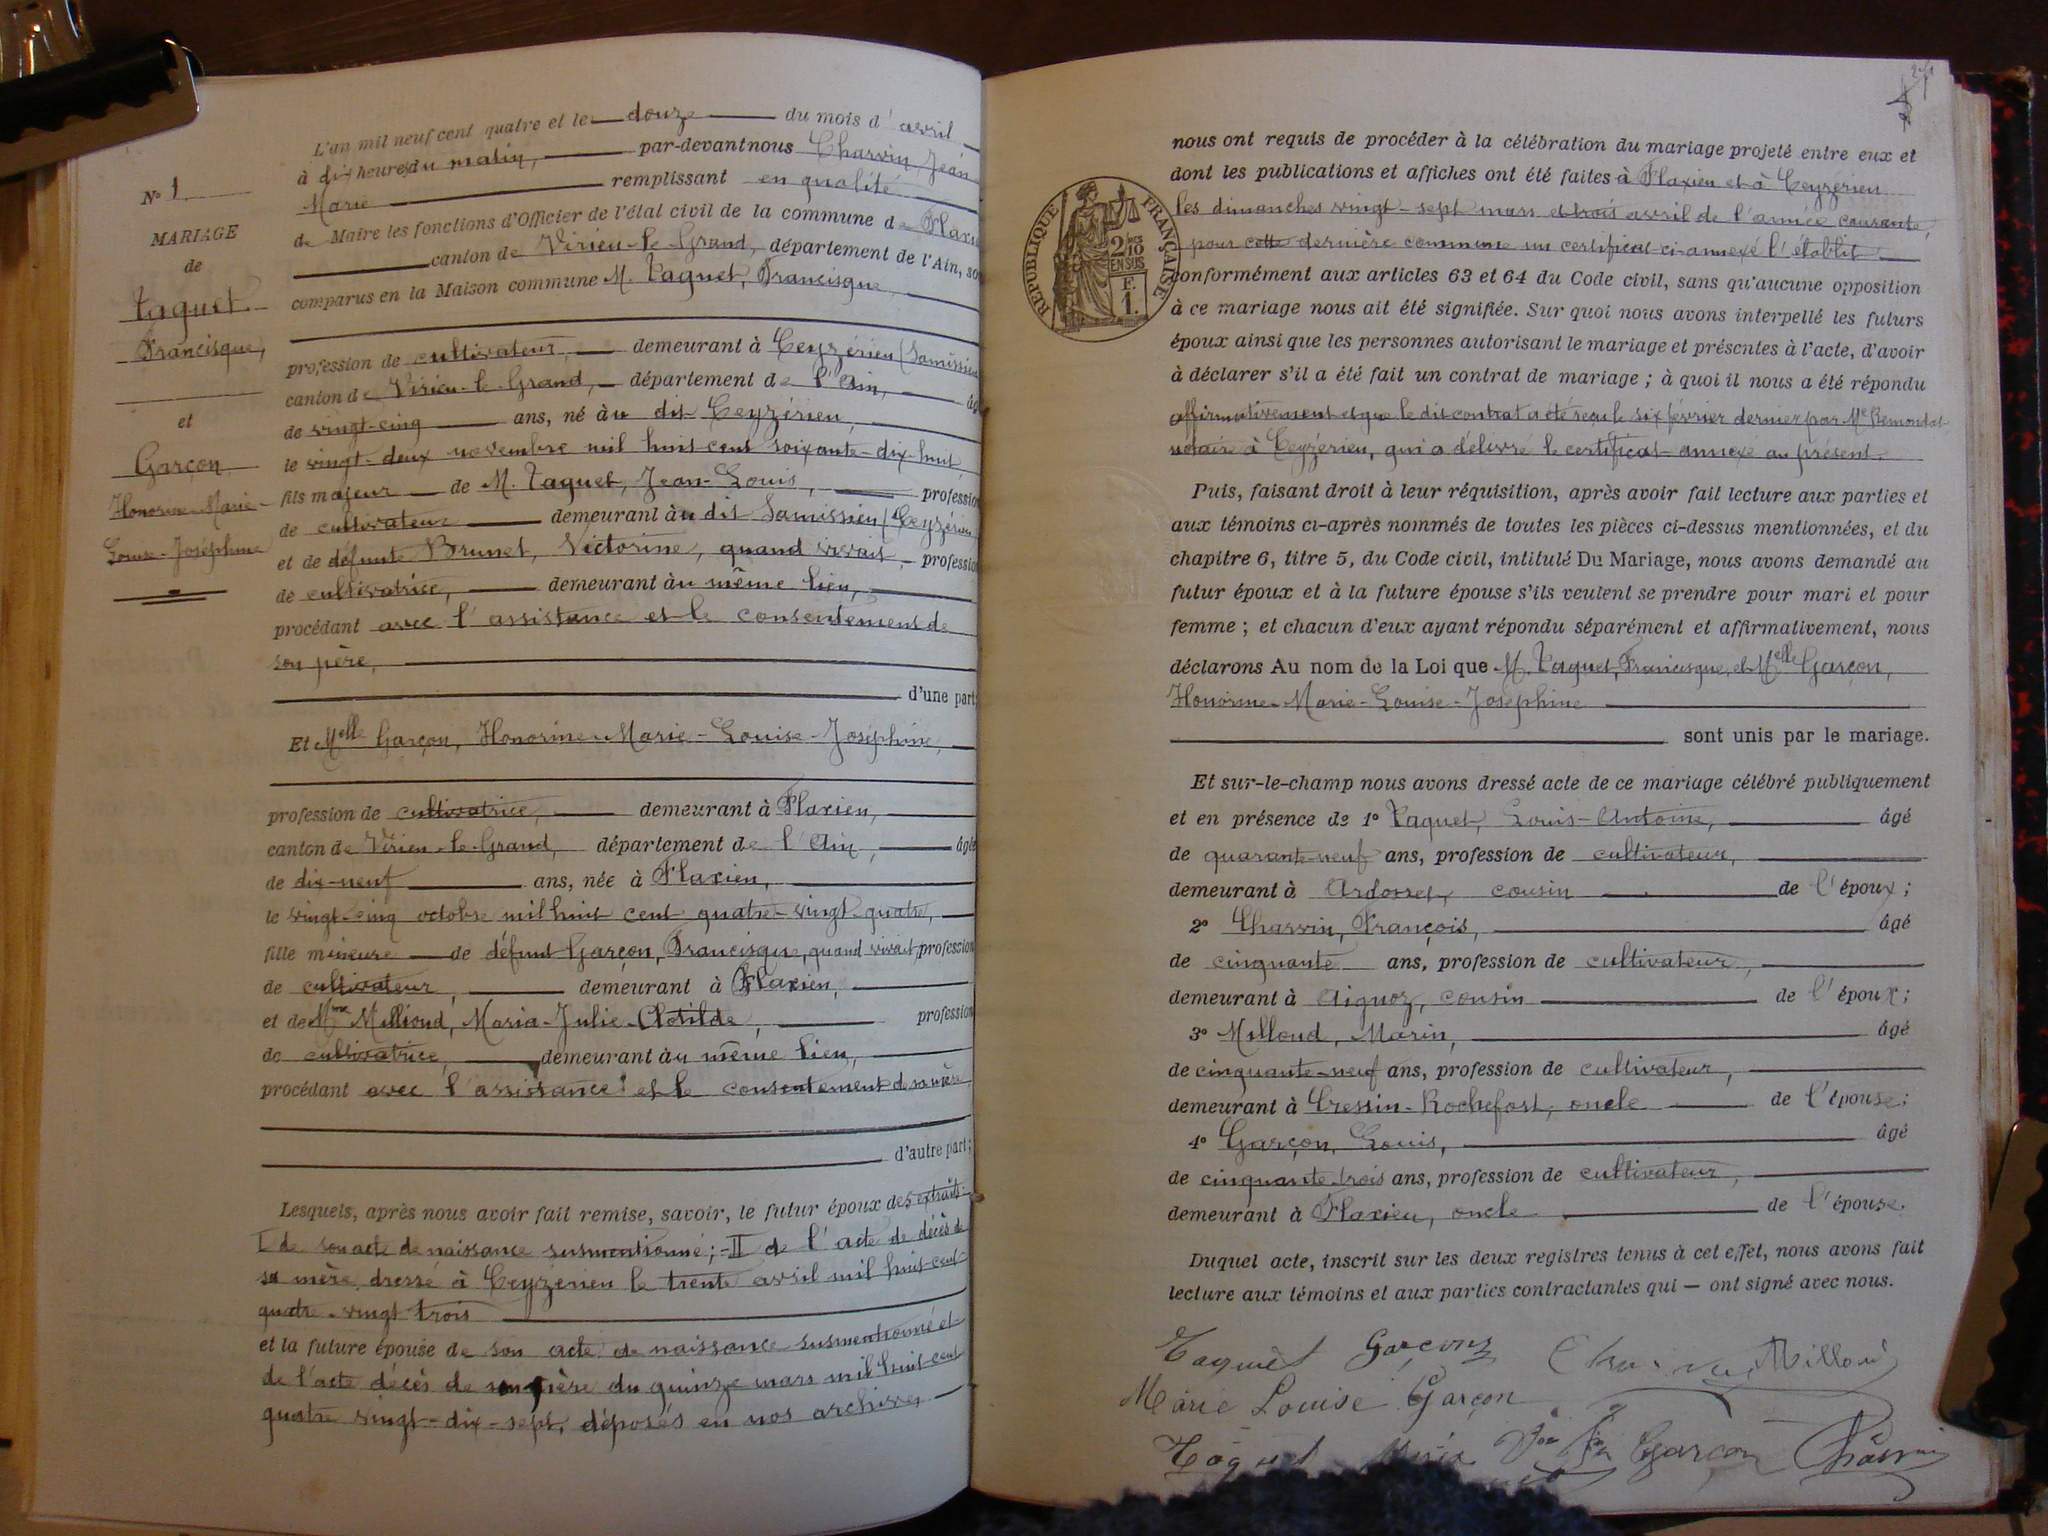 N° 1
MARIAGE
de
Taguet
Francisque,
et
Garçon
Honorine-Marie-
Louise-Joséphine
L'an mil neuf cent quatre et le douze du mois d'avril
à dix heures du matin, par-devant nous Charvin, Jean
Marie remplissant en qualité
de Maire les fonctions d'Officier de l'état civil de la commune de Flaxieu
canton de Virieu-le-Grand, département de l'Ain, so
comparus en la Maison commune M. Taguet, Francisque,
profession de cultivateur, demeurant à Ceyzérieu
canton de Virieu-le-Grand, département de l'Ain, âg
de vingt-cinq ans, né au dit Ceyzérieu,
le vingt-deux novembre mil huit cent soixante-dix-huit,
fils majeur de M. Taguet, Jean-Louis, profession
de cultivateur demeurant au dit (Ceyzérieu
et de défunte Brunet, Victorine, quand vivait, profession
de cultivatrice, demeurant au même lieu,
procédant avec l'assistance et le consentement de
son père,
d'une part
Et Melle Garçon, Honorine-Marie-Louise-Joséphine,
profession de cultivatrice, demeurant à Flaxieu,
canton de Virieu-le-Grand, département de l'Ain, âgée
de dix-neuf ans, née à Flaxieu,
le vingt-cinq octobre mil huit cent quatre-vingt-quatre,
fille mineure de défunt Garçon, Francisque, quand vivait, profession
de cultivateur, demeurant à Flaxieu,
et de Mme Millioud, Maria-Julie-Clotilde, profession
de cultivatrice, demeurant au même lieu,
procédant avec l'assistance et le consentement de sa mère,
d'autre part;
Lesquels, après nous avoir fait remise, savoir, le futur époux des extraits:
I de son acte de naissance susmentionné; -II de l'acte de décès de
sa mère dressé à Ceyzérieu le trente avril mil huit-cent-
quatre-vingt trois
et la future épouse de son acte de naissance susmentionné et
de l'acte décès de son père du quinze mars mil huit-cent
quatre vingt-dix-sept, déposés en nos archives
nous ont requis de procéder à la célébration du mariage projeté entre eux et
dont les publications et affiches ont été faites à Flaxieu et à Ceyzérieu
les dimanches vingt-sept mars et trois avril de l'année courante,
pour cette dernière commune un certificat ci-annexé l'établit
conformément aux articles 63 et 64 du Code civil, sans qu'aucune opposition
à ce mariage nous ait été signifiée. Sur quoi nous avons interpellé les futurs
époux ainsi que les personnes autorisant le mariage et présentes à l'acte, d'avoir
à déclarer s'il a été fait un contrat de mariage ; à quoi il nous a été répondu
affirmativement et que le dit contrat a été reçu le six février dernier par Me
notaire à Ceyzérieu, qui a délivré le certificat annexé au présent.
RÉPUBLIQUE FRANÇAISE
2/10 EN SUS
F.
1.
Puis, faisant droit à leur réquisition, après avoir fait lecture aux parties et
aux témoins ci-après nommés de toutes les pièces ci-dessus mentionnées, et du
chapitre 6, titre 5, du Code civil, intitulé Du Mariage, nous avons demandé au
futur époux et à la future épouse s'ils veulent se prendre pour mari et pour
femme ; et chacun d'eux ayant répondu séparément et affirmativement, nous
déclarons Au nom de la Loi que M. Taguet, Francisque, et Melle Garçon,
Honorine-Marie-Louise-Joséphine
sont unis par le mariage.
Et sur-le-champ nous avons dressé acte de ce mariage célébré publiquement
et en présence de 1° Taguet, Louis-Antoine, âgé
de quarante-neuf ans, profession de cultivateur,
demeurant à Ardosset, cousin de l'époux ;
2° Charvin, François, âgé
de cinquante ans, profession de cultivateur,
demeurant à Aignoz, cousin de l'époux;
3° Milloud, Marin, âgé
de cinquante-neuf ans, profession de cultivateur,
demeurant à Cressin-Rochefort, oncle de l'épouse;
4° Garçon, Louis, âgé
de cinquante-trois ans, profession de cultivateur,
demeurant à Flaxieu, oncle de l'épouse.
Duquel acte, inscrit sur les deux registres tenus à cet effet, nous avons fait
lecture aux témoins et aux parties contractantes qui — ont signé avec nous.
Taguet Garçon Millou
Marie Louise Garçon
Taguet Garçon Charvin